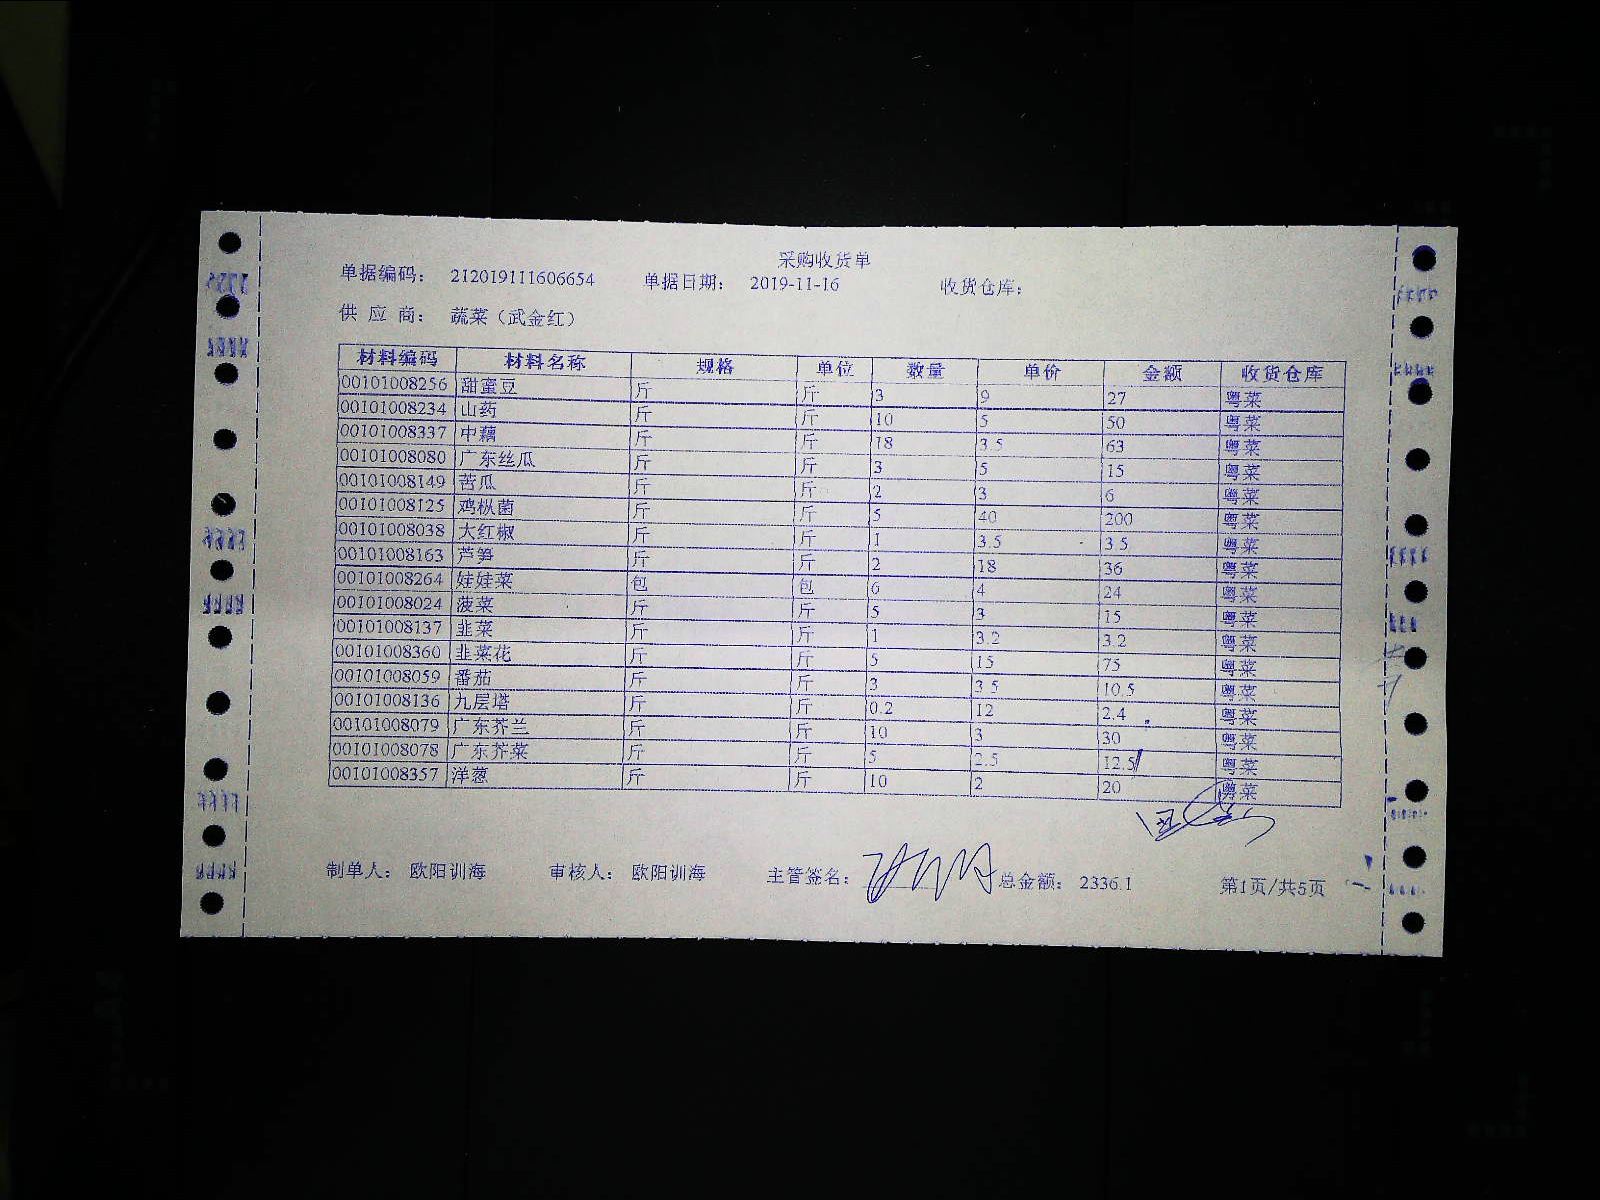 采购收货单
单据编码: 212019111606654 单据日期: 2019-11-16 收货仓库:
供 应 商: 蔬菜(武金红)
材料编码 材料名称 规格 单位 数量 单价 金额 收货仓库
00101008256 甜蜜豆 斤 斤 3 9 27 粤菜
00101008234 山药 斤 斤 10 5 50 粤菜
00101008337 中藕 斤 斤 18 3.5 63 粤菜
00101008080 广东丝瓜 斤 斤 3 5 15 粤菜
00101008149 苦瓜 斤 斤 2 3 6 粤菜
00101008125 鸡枞菌 斤 斤 5 40 200 粤菜
00101008038 大红椒 斤 斤 1 3.5 3.5 粤菜
00101008163 芦笋 斤 斤 2 18 36 粤菜
00101008264 娃娃菜 包 包 6 4 24 粤菜
00101008024 菠菜 斤 斤 5 3 15 粤菜
00101008137 韭菜 斤 斤 1 3.2 3.2 粤菜
00101008360 韭菜花 斤 斤 5 15 75 粤菜
00101008059 番茄 斤 斤 3 3.5 10.5 粤菜
00101008136 九层塔 斤 斤 0.2 12 2.4 粤菜
00101008079 广东芥兰 斤 斤 10 3 30 粤菜
00101008078 广东芥菜 斤 斤 5 2.5 12.5 粤菜
00101008357 洋葱 斤 斤 10 2 20 粤菜
制单人: 欧阳训海 审核人: 欧阳训海 主管签名: 总金额: 2336.1 第1页/共5页